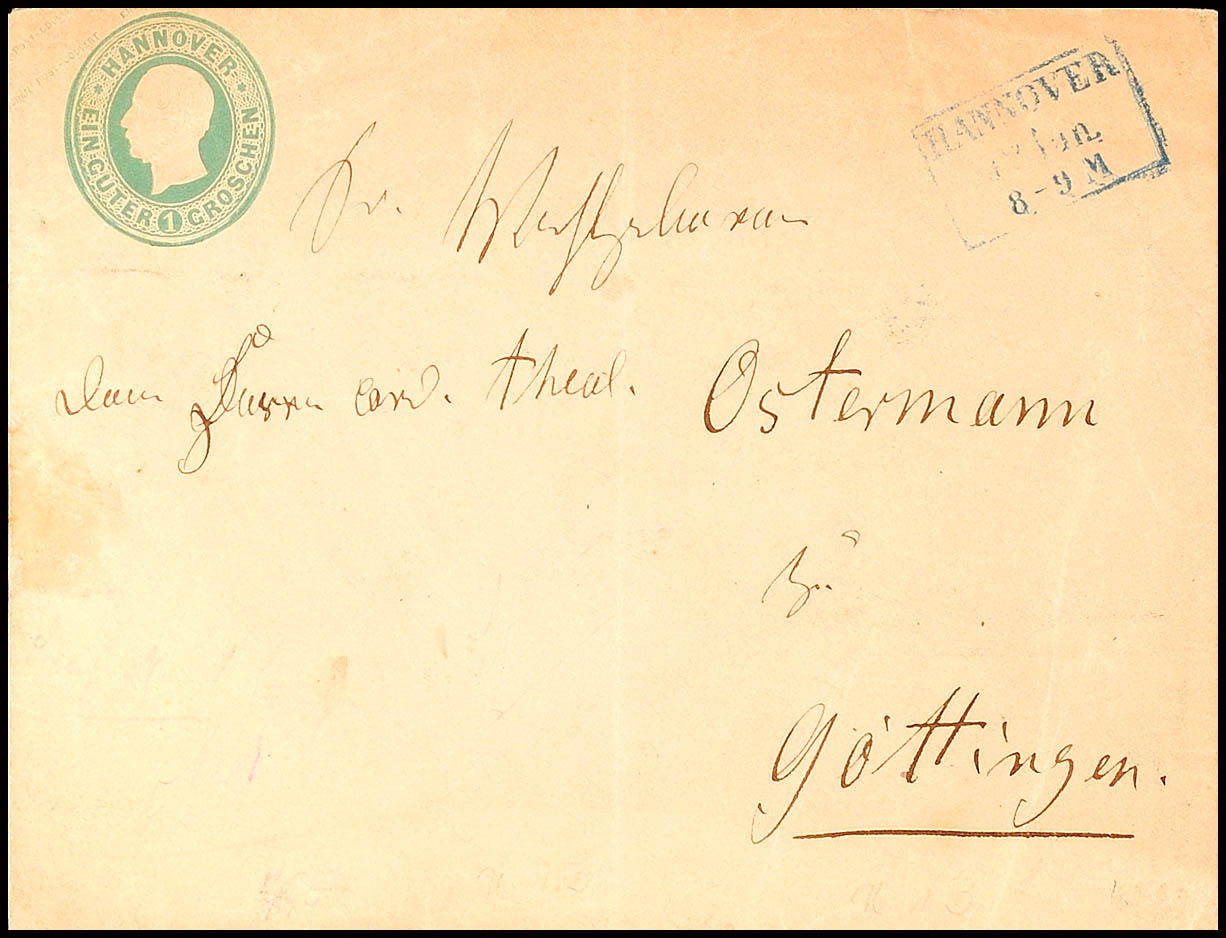 HANNOVER
EIN GUTER 1 GROSCHEN
HANNOVER
Jan
8-9 M
Sr. Wohlgeboren
dem Herrn cand. theol. Ostermann
zu
Göttingen.